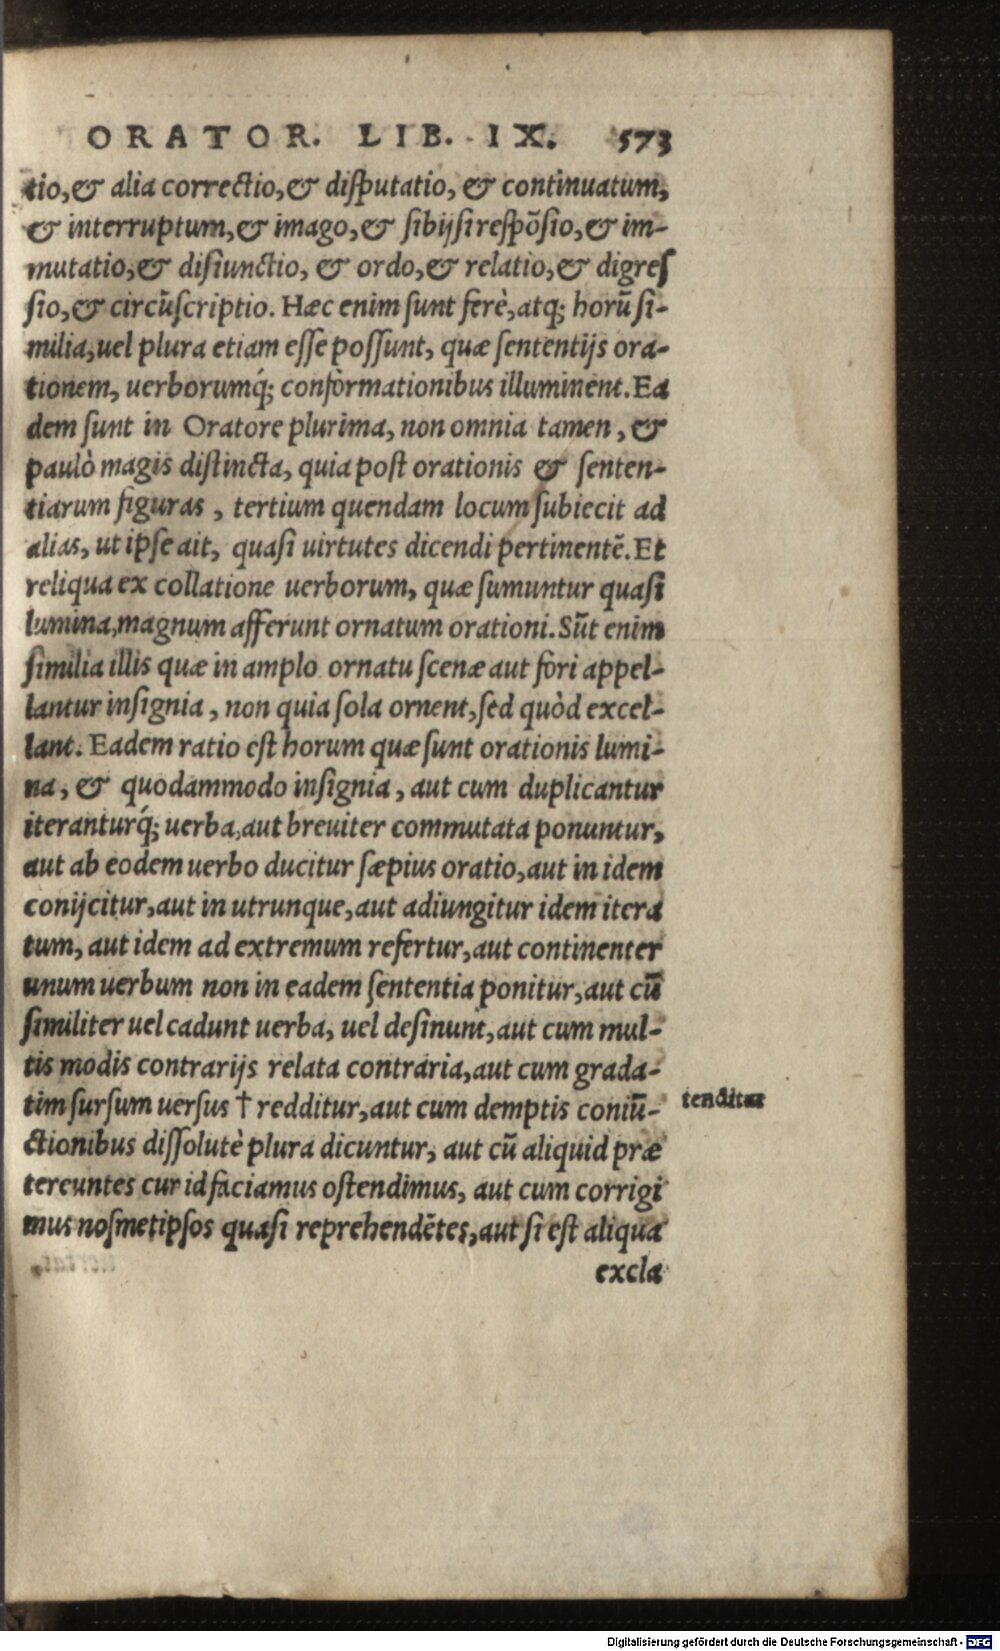 ORATOR. LIB. IX. 573
tio,& alia correctio,& disputatio, & continuatum,
& interruptum,& imago,& sibijsi respõsio,& im-
mutatio,& disiunctio, & ordo,& relatio,& digreſ
sio,& circũscriptio. Hæc enim sunt ferè,atq; horũ si-
milia,uel plura etiam esse possunt, quæ sententijs ora-
tionem, uerborumq́; confòrmationibus illuminent. Ea
dem sunt in Oratore plurima, non omnia tamen, &
paulò magis distincta, quia post orationis & senten-
tiarum figuras, tertium quendam locum subiecit ad
alias, ut ipse ait, quasi uirtutes dicendi pertinentẽ. Et
reliqua ex collatione uerborum, quæ sumuntur quasi
lumina,magnum afferunt ornatum orationi. Sũt enim
similia illis quæ in amplo ornatu scenæ aut fori appel-
lantur insignia, non quia sola ornent,sed quòd excel-
lant. Eadem ratio est horum quæ sunt orationis lumi-
na, & quodammodo insignia, aut cum duplicantur
iteranturq́; uerba,aut breuiter commutata ponuntur,
aut ab eodem uerbo ducitur sæpius oratio,aut in idem
conijcitur,aut in utrunque,aut adiungitur idem itera
tum, aut idem ad extremum refertur,aut continenter
unum uerbum non in eadem sententia ponitur,aut cũ
similiter uel cadunt uerba, uel desinunt,aut cum mul-
tis modis contrarijs relata contraria,aut cum grada-
tim sursum uersus † redditur,aut cum demptis coniũ-
tenditur
ctionibus dissolutè plura dicuntur, aut cũ aliquid præ
tereuntes cur id faciamus ostendimus, aut cum corrigi
mus nosmetipsos quasi reprehendẽtes,aut si est aliqua
excla
Digitalisierung gefördert durch die Deutsche Forschungsgemeinschaft - DFG